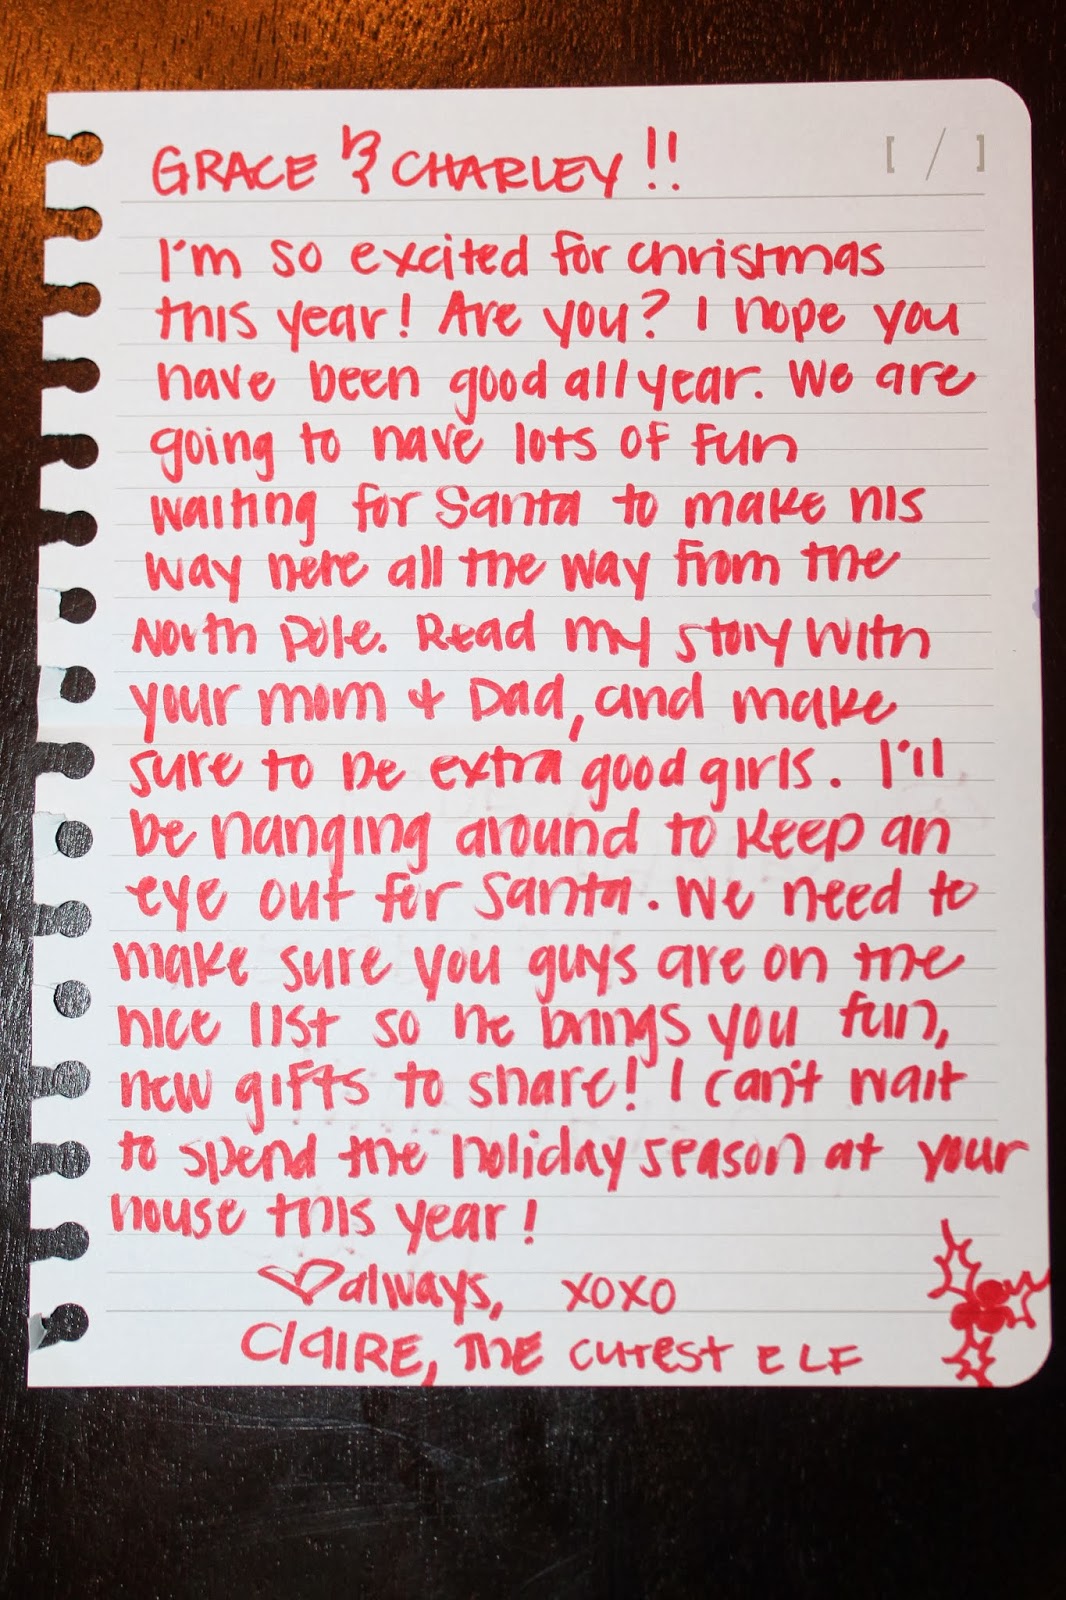 GRACE & CHARLEY!!
[ / ]
I'm so excited for christmas
this year! Are you? I hope you
have been good all year. We are
going to have lots of fun
waiting for Santa to make his
way here all the way from the
North Pole. Read my story with
your mom + Dad, and make
sure to be extra good girls. I'll
be hanging around to keep an
eye out for Santa. We need to
make sure you guys are on the
nice list so he brings you fun,
new gifts to share! I can't wait
to spend the holiday season at your
house this year!
♡always, xoxo
Claire, the cutest elf